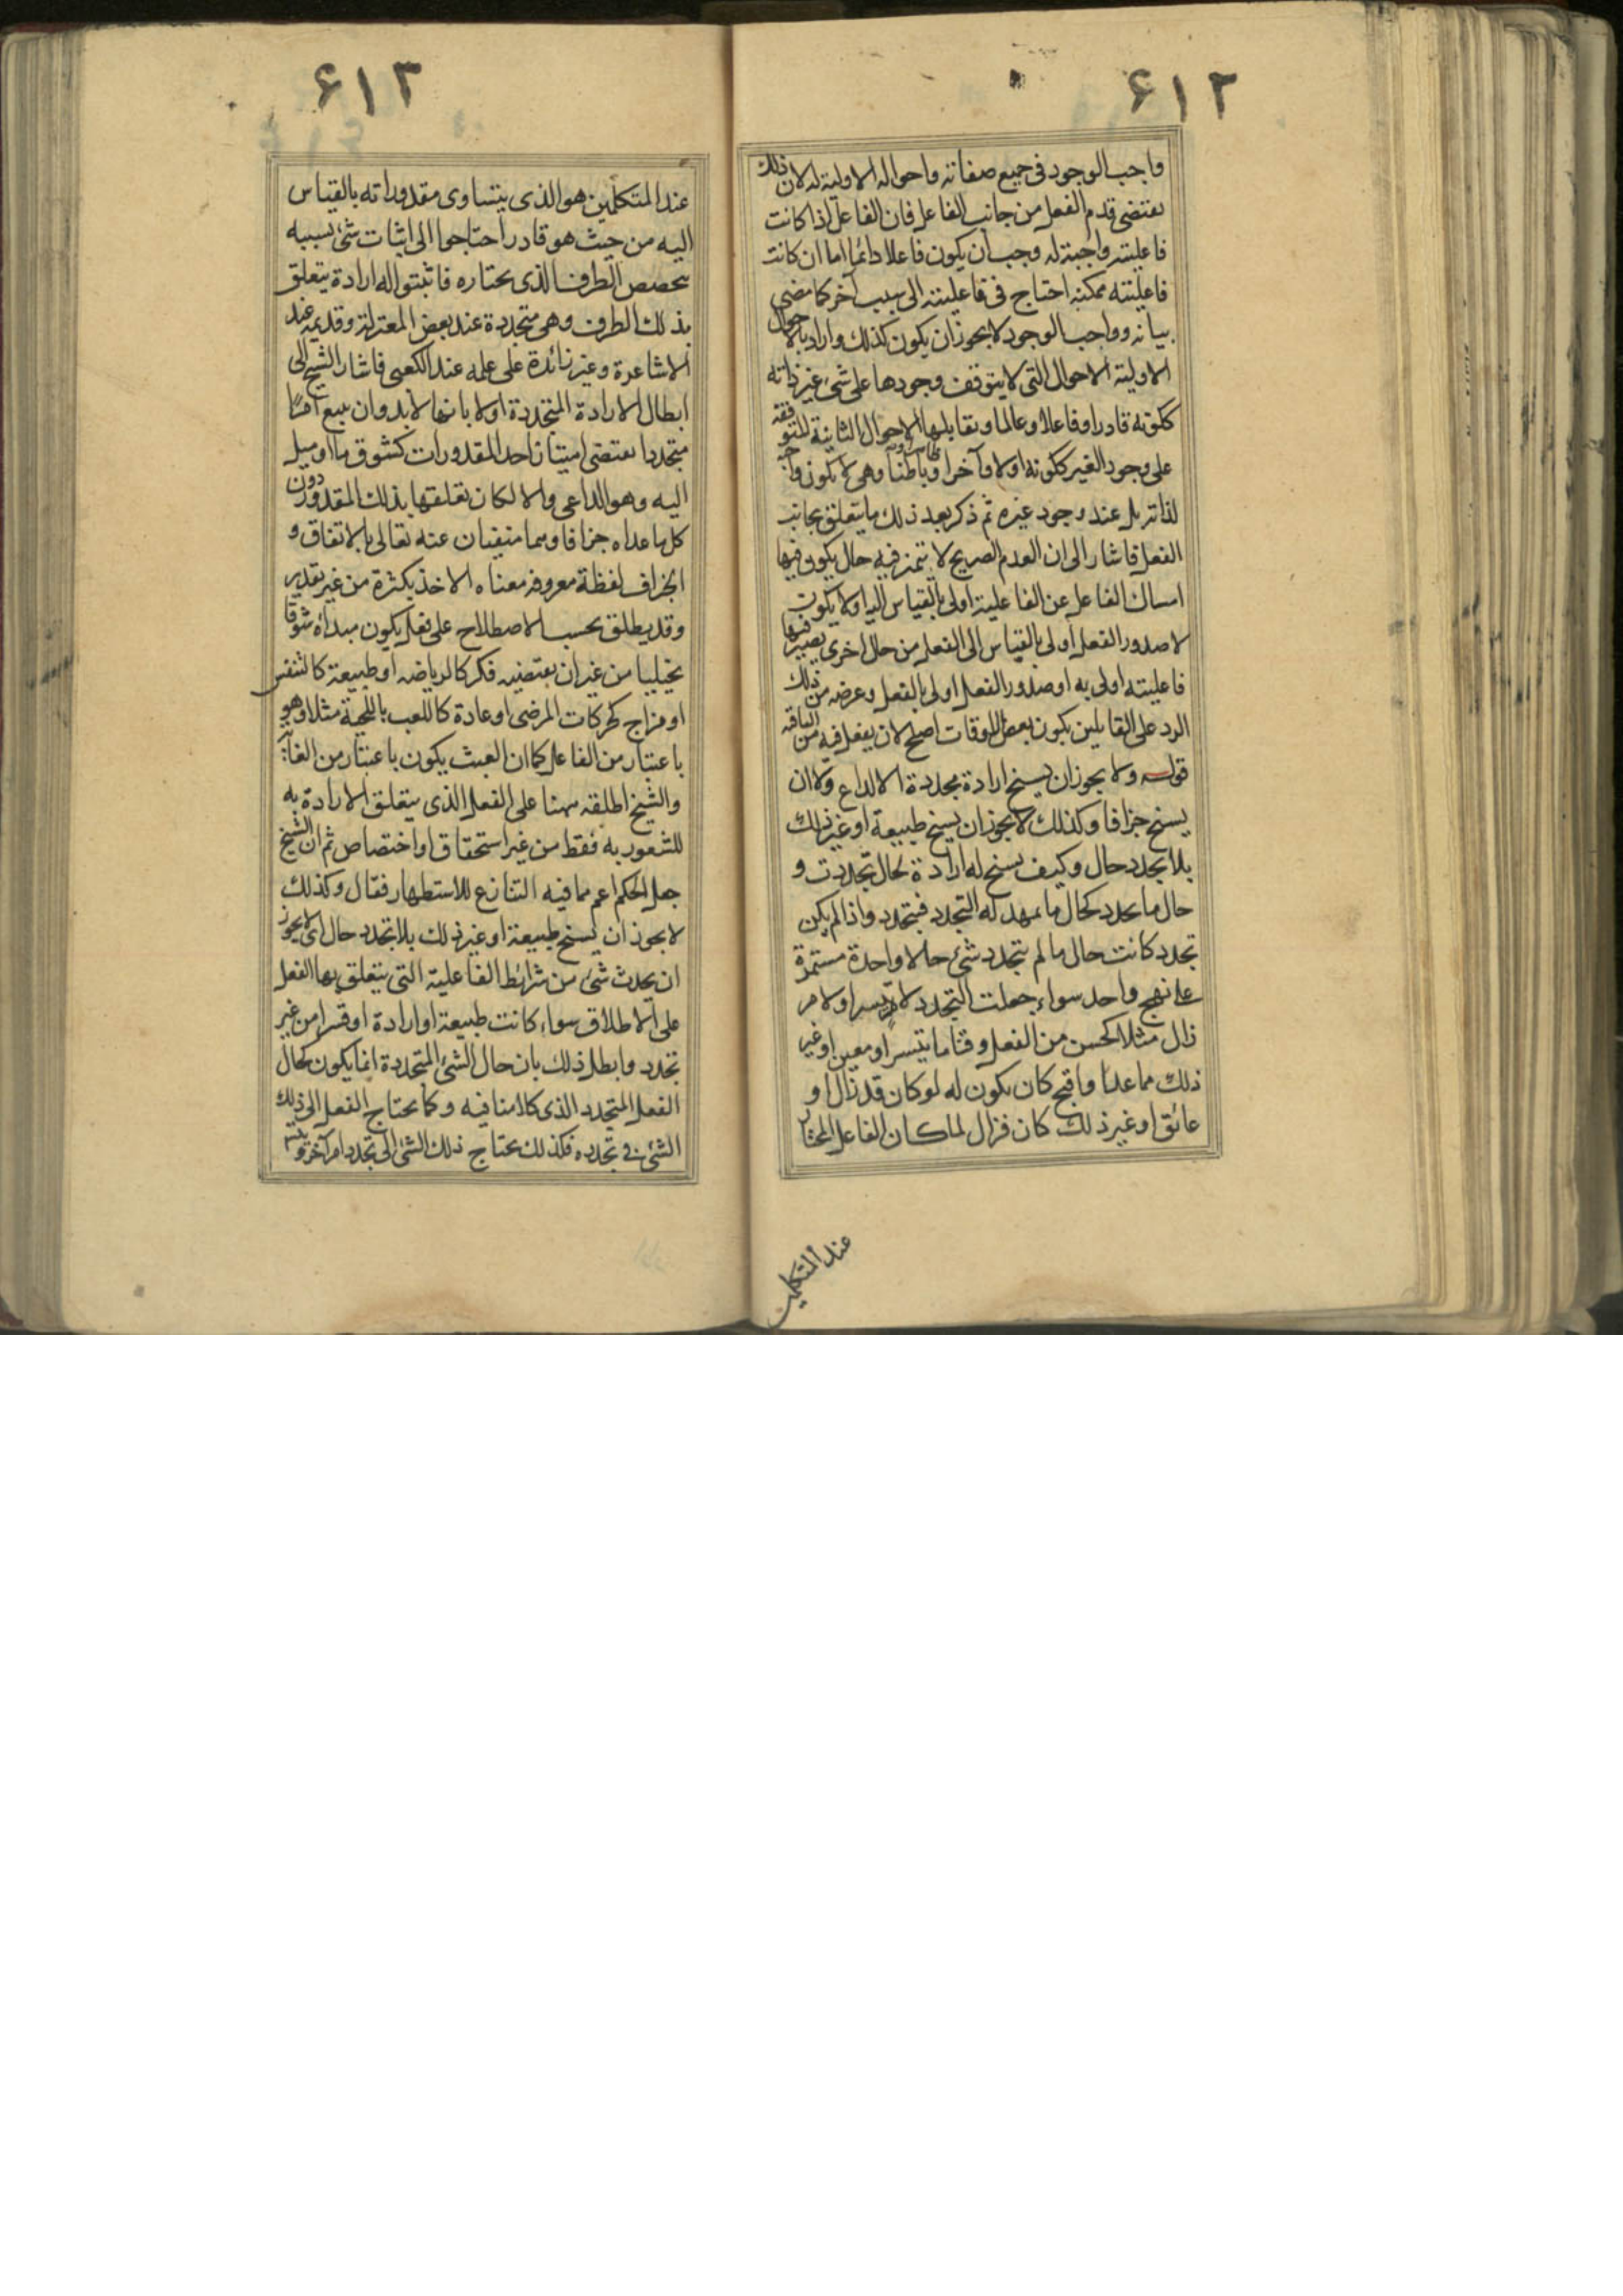 ٦١٢
واجب الوجود فى جميع صفاته واحواله الاولية له لان ذلك
يقتضى قدم الفعل من جانب الفاعل فان الفاعل اذا كانت
فاعليته واجبة له وجب ان يكون فاعلا دائما اما ان كانت
فاعليته ممكنة احتاج فى فاعليته الى سبب آخر كما مضى
بيانه وواجب الوجود لا يجوز ان يكون كذلك واراد بالاحوال
الاولية الاحوال التى لا يتوقف وجودها على شئ غير ذاته
ككونه قادرا وفاعلا وعالما وتقابلها الاحوال الثانية المتوقفة
على وجود الغير ككونه اولا وآخرا وظاهرا وباطنا وهى لا تكون واجبة
لذاته بل عند وجود غيره ثم ذكر بعد ذلك ما يتعلق بجانب
الفعل فاشار الى ان العدم الصريح لا يتميز فيه حال يكون فيها
امساك الفاعل عن الفاعلية اولى بالقياس اليه او لا يكون
لا صدور الفعل اولى بالقياس الى الفعل من حال اخرى يصير فيها
فاعليته اولى به او صدور الفعل اولى بالفعل وغرضه من ذلك
الرد على القايلين بكون بعض الاوقات اصلح لان يفعل فيه من الباقية
قوله ولا يجوز ان يسنح ارادة مجددة الا لداع ولا ان
يسنح جزافا وكذلك لا يجوز ان يسنح طبيعة او غير ذلك
بلا تجدد حال وكيف يسنح له ارادة لحال تجددت و
حال ما تجدد كحال ما يمهد له التجدد فيتجدد واذا لم يكن
تجدد كانت حال ما لم يتجدد شئ حالا واحدة مستمرة
على نهج واحد سواء جعلت التجدد لامر تيسر او لامر
زال مثلا لحسن من الفعل وقتا ما يتيسر او معين او غير
ذلك مما عدنا وقبح كان يكون له لو كان قد زال او
عائق او غير ذلك كان فزال لما كان الفاعل المختار
عند المتكلمين
٦١٣
عند المتكلمين هو الذى يتساوى مقدوراته بالقياس
اليه من حيث هو قادر احتاجوا الى اثبات شئ بسببه
يتخصص الطرف الذى يختاره فاثبتوا له ارادة يتعلق
بذلك الطرف وهى متجددة عند بعض المعتزلة وقديمة عند
الاشاعرة وغير زائدة على علمه عند الكعبى فاشار الشيخ الى
ابطال الارادة المتجددة اولا بانها لا بد وان يتبع امرا
متجددا يقتضى امتياز احد المقدورات كشوق ما او ميل
اليه وهو الداعى والا لكان تعلقها بذلك المقدور دون
كل ما عداه جزافا وهما منفيان عنه تعالى بالاتفاق و
الجزاف لفظة معروفة معناه الاخذ بكثرة من غير تقدير
وقد يطلق بحسب الاصطلاح على فعل يكون مبدأه شوقا
تخيليا من غير ان يقتضيه فكر كالرياضة او طبيعة كالتنفس
او مزاج كحركات المرضى او عادة كاللعب باللحية مثلا وهو
باعتبار من الفاعل كما ان العبث يكون باعتبار من الغاية
والشيخ اطلقه ههنا على الفعل الذى يتعلق الارادة به
للشعور به فقط من غير استحقاق او اختصاص ثم ان الشيخ
جعل الحكم اعم مما فيه التنازع للاستظهار فقال وكذلك
لا يجوز ان يسنح طبيعة او غير ذلك بلا تجدد حال اى لا يجوز
ان يحدث شئ من شرائط الفاعلية التى يتعلق بها الفعل
على الاطلاق سواء كانت طبيعة او ارادة او قسرا من غير
تجدد وابطل ذلك بان حال الشئ المتجددة انما يكون كحال
الفعل المتجدد الذى كلامنا فيه وكما يحتاج الفعل الى ذلك
الشئ فى تجدده فكذلك يحتاج ذلك الشئ الى تجدد امر آخر